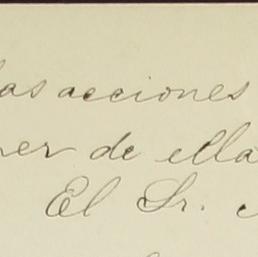 las acciones
de ella
El Sr.